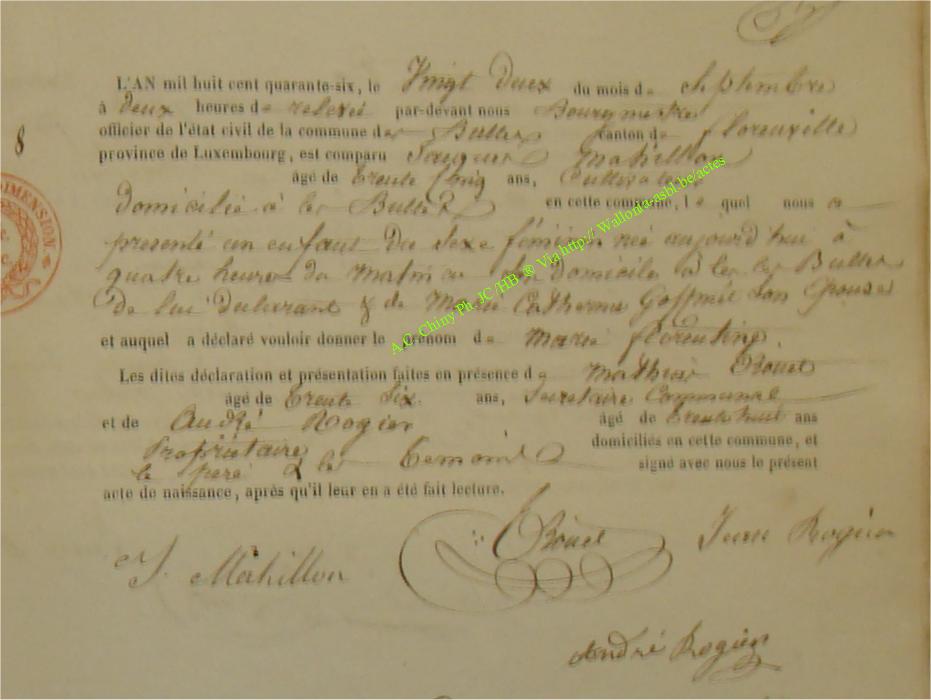 L'AN mil huit cent quarante-six, le Vingt deux du mois de Septembre
à deux heures de relevée par-devant nous Bourgmestre
officier de l'état civil de la commune des Bulles canton de Florenville
province de Luxembourg, est comparu Jacques Mahillon
âgé de trente cinq ans, Cultivateur
domicilié à les Bulles en cette commune, le quel nous a
présenté un enfant du Sexe féminin née aujourd'hui à
quatre heures du Matin au domicile à les Bulles
de lui déclarant & de Marie Catherine Goffinet son épouse
et auquel a déclaré vouloir donner le prénom de Marie florentine.
Les dites déclaration et présentation faites en présence de Mathieu Bouet
âgé de trente Six ans, Secrétaire Communal
et de André Rogier âgé de trente huit ans
Propriétaire domiciliés en cette commune, et
le père & les témoins signé avec nous le présent
acte de naissance, après qu'il leur en a été fait lecture.
J. Mahillon Bouet Rogier
André Rogier
8
DIMENSION
A.G. Chiny Ph. JC /HB ® Via http:// Wallonia-asbl.be/actes